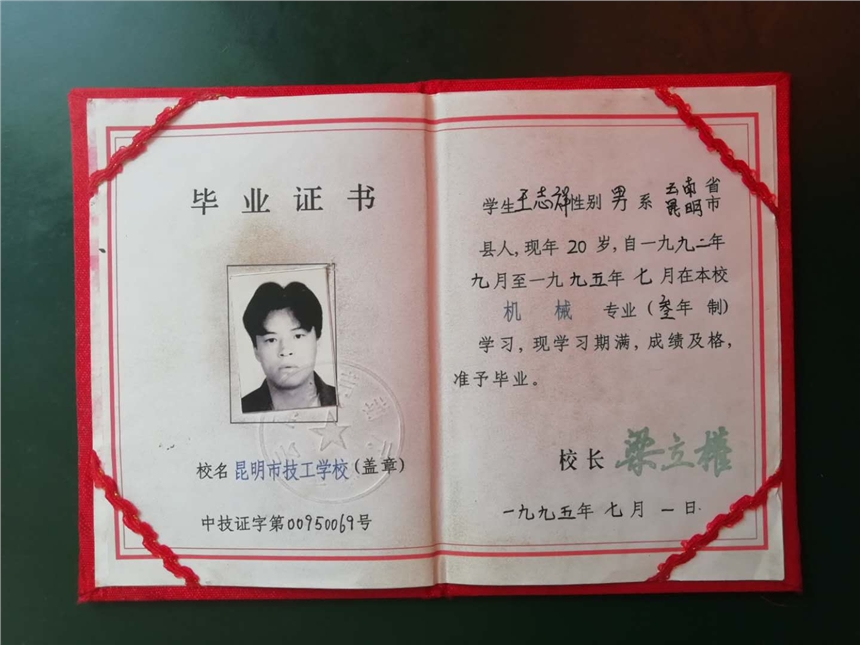 毕业证书
校名 昆明市技工学校(盖章)
中技证字第00950069号
学生王志祥性别 男 系 云南省昆明市
县人,现年 20 岁,自一九九二年
九月至一九九五年 七月在本校
机械 专业(叁年 制)
学习,现学习期满,成绩及格,
准予毕业。
校长 梁立權
一九九五年 七月 一日